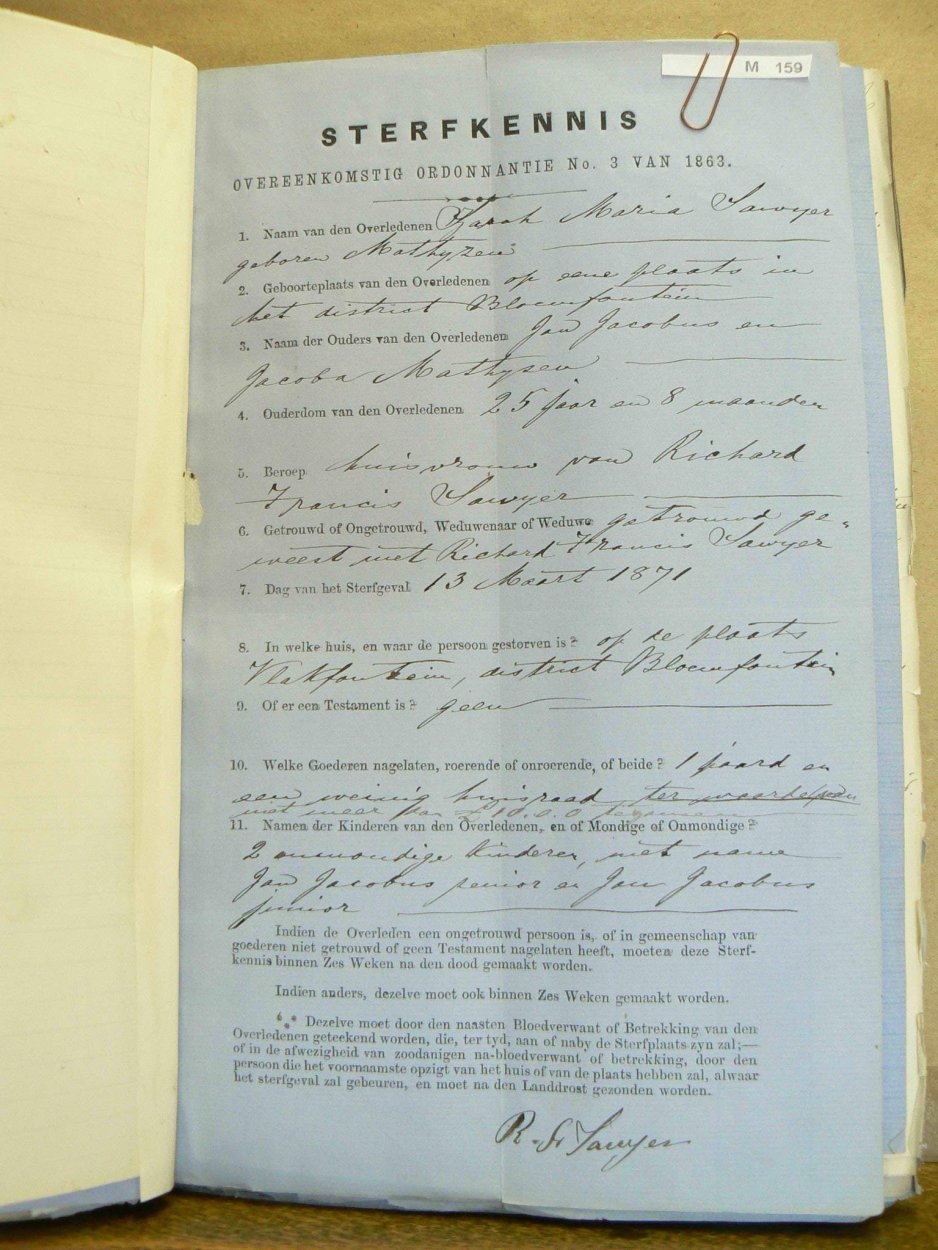 M 159
STERFKENNIS
OVEREENKOMSTIG ORDONNANTIE No. 3 VAN 1863.
1. Naam van den Overledenen Sarah Maria Sawyer
geboren Mathyzen
2. Geboorteplaats van den Overledenen op eene plaats in
het district Bloemfontein
3. Naam der Ouders van den Overledenen Jan Jacobus en
Jacoba Mathysen
4. Ouderdom van den Overledenen 25 jaar en 8 maanden
5. Beroep huisvrouw van Richard
Francis Sawyer
6. Getrouwd of Ongetrouwd, Weduwenaar of Weduwe getrouwd ge-
weest met Richard Francis Sawyer
7. Dag van het Sterfgeval 13 Maart 1871
8. In welke huis, en waar de persoon gestorven is? op de plaats
Vlakfontein, district Bloemfontein
9. Of er een Testament is? geen
10. Welke Goederen nagelaten, roerende of onroerende, of beide? 1 paard en
een weinig huisraad ter waarde van
niet meer dan £10.0.0 tezamen
11. Namen der Kinderen van den Overledenen, en of Mondige of Onmondige?
2 onmondige Kinderen, met name
Jan Jacobus senior en Jan Jacobus
junior
Indien de Overleden een ongetrouwd persoon is, of in gemeenschap van
goederen niet getrouwd of geen Testament nagelaten heeft, moeten deze Sterf-
kennis binnen Zes Weken na den dood gemaakt worden.
Indien anders, dezelve moet ook binnen Zes Weken gemaakt worden.
*** Dezelve moet door den naasten Bloedverwant of Betrekking van den
Overledenen geteekend worden, die, ter tyd, aan of naby de Sterfplaats zyn zal;—
of in de afwezigheid van zoodanigen na-bloedverwant of betrekking, door den
persoon die het voornaamste opzigt van het huis of van de plaats hebben zal, alwaar
het sterfgeval zal gebeuren, en moet na den Landdrost gezonden worden.
R. Fr Sawyer